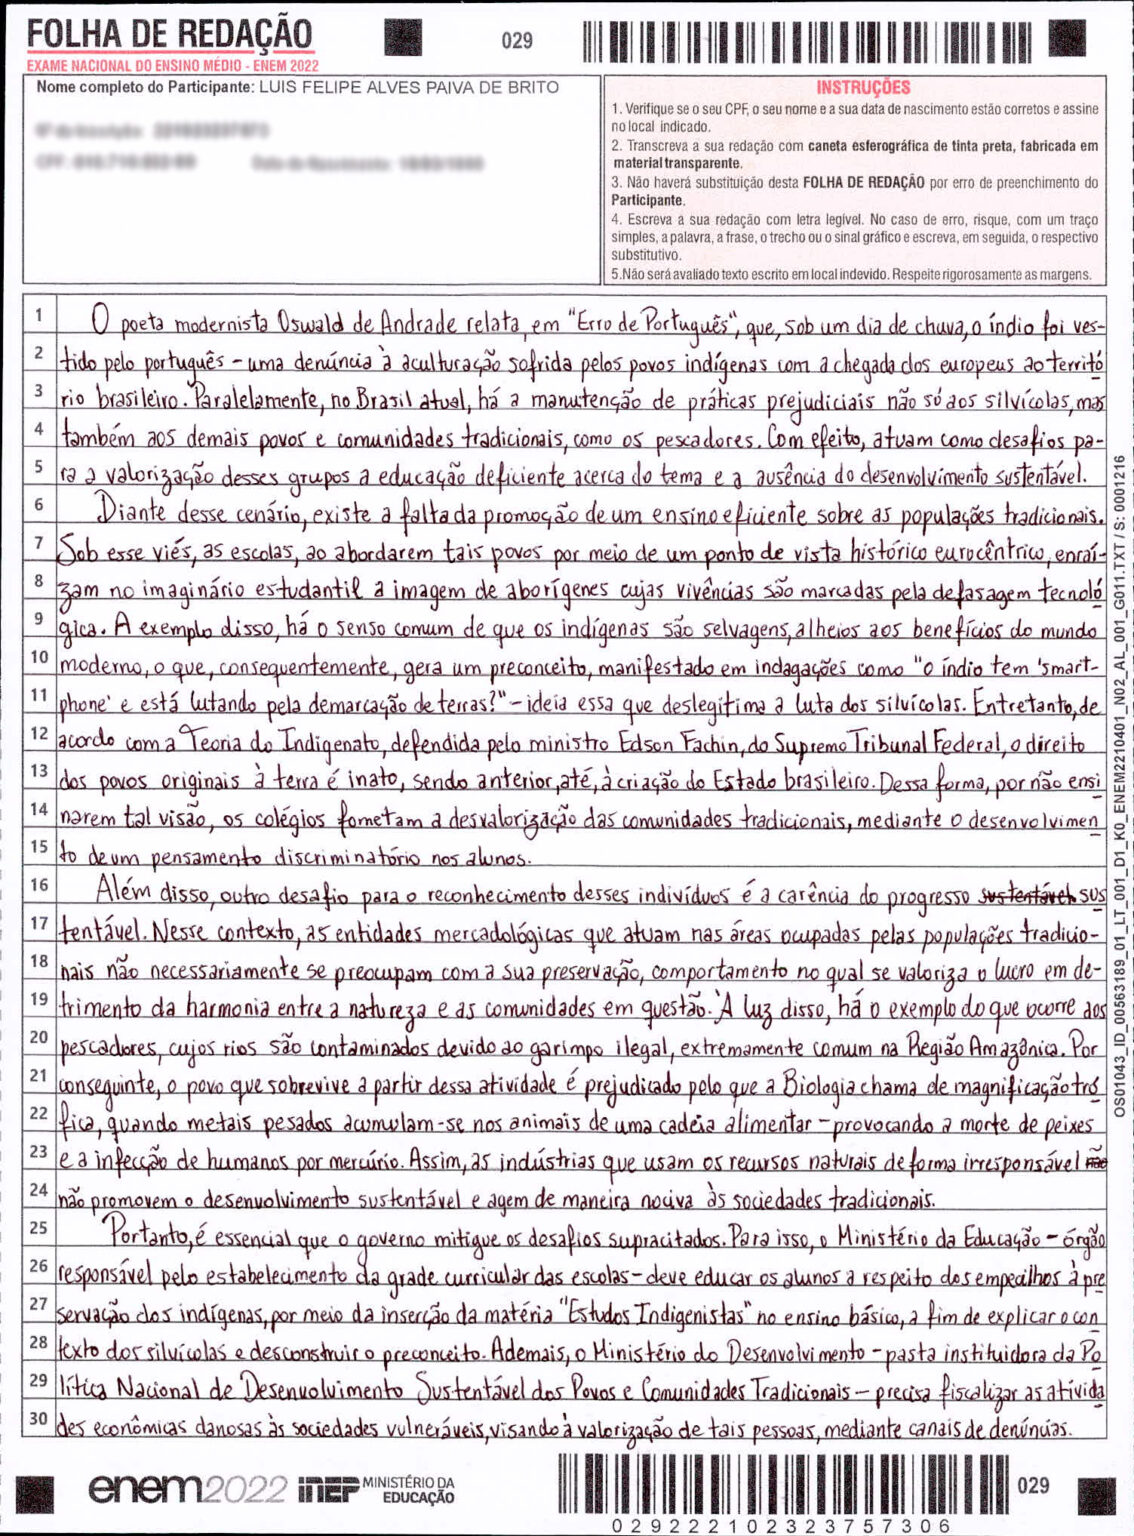 FOLHA DE REDAÇÃO
029
EXAME NACIONAL DO ENSINO MÉDIO - ENEM 2022
Nome completo do Participante: LUIS FELIPE ALVES PAIVA DE BRITO
INSTRUÇÕES
1. Verifique se o seu CPF, o seu nome e a sua data de nascimento estão corretos e assine
no local indicado.
2. Transcreva a sua redação com caneta esferográfica de tinta preta, fabricada em
material transparente.
3. Não haverá substituição desta FOLHA DE REDAÇÃO por erro de preenchimento do
Participante.
4. Escreva a sua redação com letra legível. No caso de erro, risque, com um traço
simples, a palavra, a frase, o trecho ou o sinal gráfico e escreva, em seguida, o respectivo
substitutivo.
5.Não será avaliado texto escrito em local indevido. Respeite rigorosamente as margens.
1 O poeta modernista Oswald de Andrade relata, em "Erro de Português", que, sob um dia de chuva, o índio foi ves-
2 tido pelo português - uma denúncia à aculturação sofrida pelos povos indígenas com a chegada dos europeus ao territó
3 rio brasileiro. Paralelamente, no Brasil atual, há a manutenção de práticas prejudiciais não só aos silvícolas, mas
4 também aos demais povos e comunidades tradicionais, como os pescadores. Com efeito, atuam como desafios pa-
5 ra a valorização desses grupos a educação deficiente acerca do tema e a ausência do desenvolvimento sustentável.
6 Diante desse cenário, existe a falta da promoção de um ensino eficiente sobre as populações tradicionais.
7 Sob esse viés, as escolas, ao abordarem tais povos por meio de um ponto de vista histórico eurocêntrico, enraí-
8 zam no imaginário estudantil a imagem de aborígenes cujas vivências são marcadas pela defasagem tecnoló
9 gica. A exemplo disso, há o senso comum de que os indígenas são selvagens, alheios aos benefícios do mundo
10 moderno, o que, consequentemente, gera um preconceito, manifestado em indagações como "o índio tem 'smart-
11 phone' e está lutando pela demarcação de terras?" - ideia essa que deslegitima a luta dos silvícolas. Entretanto, de
12 acordo com a Teoria do Indigenato, defendida pelo ministro Edson Fachin, do Supremo Tribunal Federal, o direito
13 dos povos originais à terra é inato, sendo anterior, até, à criação do Estado brasileiro. Dessa forma, por não ensi
14 narem tal visão, os colégios fometam a desvalorização das comunidades tradicionais, mediante o desenvolvimen
15 to de um pensamento discriminatório nos alunos.
16 Além disso, outro desafio para o reconhecimento desses indivíduos é a carência do progresso sustentável sus
17 tentável. Nesse contexto, as entidades mercadológicas que atuam nas áreas ocupadas pelas populações tradicio-
18 nais não necessariamente se preocupam com a sua preservação, comportamento no qual se valoriza o lucro em de-
19 trimento da harmonia entre a natureza e as comunidades em questão. À luz disso, há o exemplo do que ocorre aos
20 pescadores, cujos rios são contaminados devido ao garimpo ilegal, extremamente comum na Região Amazônica. Por
21 conseguinte, o povo que sobrevive a partir dessa atividade é prejudicado pelo que a Biologia chama de magnificação tró
22 fica, quando metais pesados acumulam-se nos animais de uma cadeia alimentar - provocando a morte de peixes
23 e a infecção de humanos por mercúrio. Assim, as indústrias que usam os recursos naturais de forma irresponsável não
24 não promovem o desenvolvimento sustentável e agem de maneira nociva às sociedades tradicionais.
25 Portanto, é essencial que o governo mitigue os desafios supracitados. Para isso, o Ministério da Educação - órgão
26 responsável pelo estabelecimento da grade curricular das escolas - deve educar os alunos a respeito dos empecilhos à pre
27 servação dos indígenas, por meio da inserção da matéria "Estudos Indigenistas" no ensino básico, a fim de explicar o con
28 texto dos silvícolas e desconstruir o preconceito. Ademais, o Ministério do Desenvolvimento - pasta instituidora da Po
29 lítica Nacional de Desenvolvimento Sustentável dos Povos e Comunidades Tradicionais - precisa fiscalizar as ativida
30 des econômicas danosas às sociedades vulneráveis, visando à valorização de tais pessoas, mediante canais de denúncias.
OS01043_ID_00563189_01_LT_001_D1_K0_ENEM2210401_N02_AL_001_G011.TXT / S: 0001216
enem2022 inep MINISTÉRIO DA
EDUCAÇÃO
029
0292221023237573 06